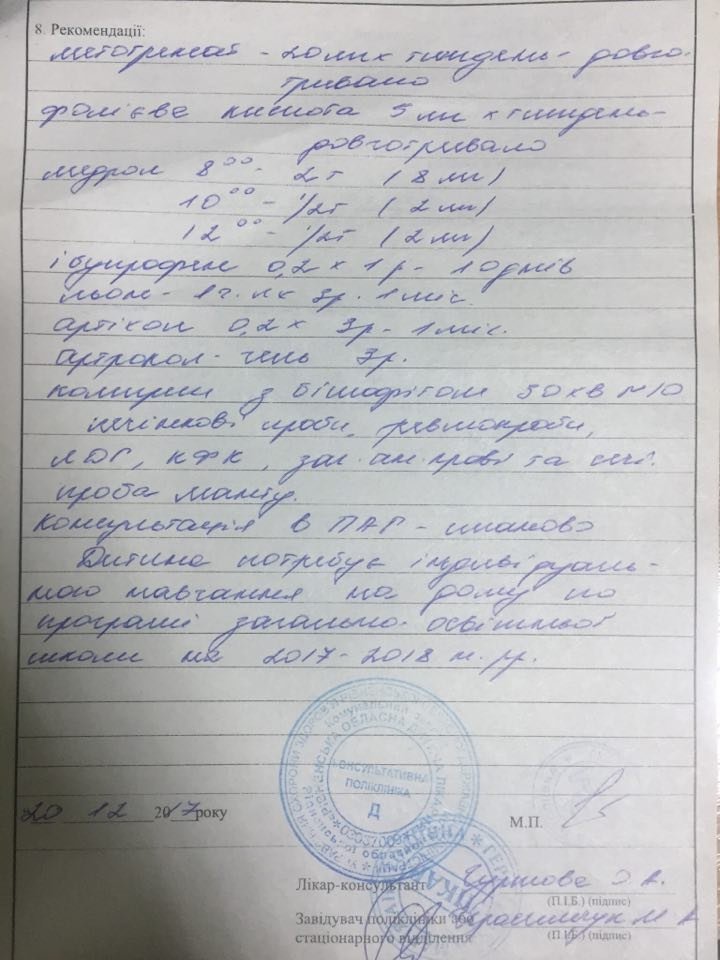 8. Рекомендації:
метотрексат - 20 мг х тиждень - довго-
тривало
фолієва кислота 5 мг х тиждень -
довготривало
медрол 8⁰⁰ - 2т (8 мг)
10⁰⁰ - 1/2т (2 мг)
12⁰⁰ - 1/2т (2 мг)
ібупрофен 0,2 х 1 р - 10 днів
льон - 1 ч. л х 3р. 1 міс.
артікол 0,2 х 3р - 1 міс.
3р.
компреси з бішофітом 30 хв №10
печінкові проби, ревмопроби,
ЛДГ, КФК, заг. ан. крові та сечі.
проба манту.
Консультація в - планово
Дитина потребує індивідуаль-
ного навчання на дому по
програмі загально-освітньої
школи на 2017-2018 н. рр.
КОНСУЛЬТАТИВНА
ПОЛІКЛІНІКА
Д
20 12 2017 року
М.П.
Лікар-консультант
(П.І.Б.) (підпис)
Завідувач поліклініки або
стаціонарного відділення
(П.І.Б.) (підпис)